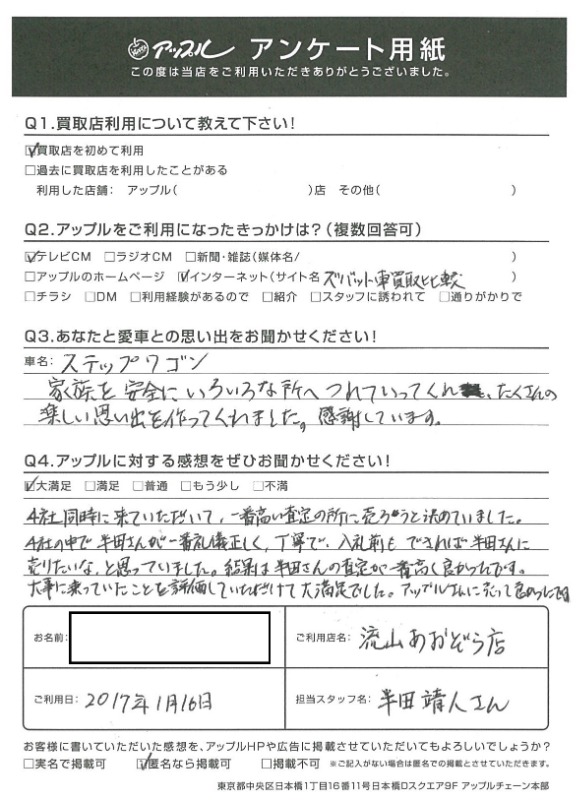 アップル アンケート用紙
この度は当店をご利用いただきありがとうございました。
Q1.買取店利用について教えて下さい!
☑買取店を初めて利用
□過去に買取店を利用したことがある
利用した店舗: アップル( )店 その他( )
Q2.アップルをご利用になったきっかけは?(複数回答可)
☑テレビCM □ラジオCM □新聞・雑誌(媒体名/ )
□アップルのホームページ ☑インターネット(サイト名 ズバット車買取比較 )
□チラシ □DM □利用経験があるので □紹介 □スタッフに誘われて □通りがかりで
Q3.あなたと愛車との思い出をお聞かせください!
車名: ステップワゴン
家族を安全にいろいろな所へつれていってくれ、たくさんの
楽しい思い出を作ってくれました。感謝しています。
Q4.アップルに対する感想をぜひお聞かせください!
☑大満足 □満足 □普通 □もう少し □不満
4社同時に来ていただいて、一番高い査定の所に売ろうと決めていました。
4社の中で半田さんが一番礼儀正しく、丁寧で、入札前も できれば半田さんに
売りたいな、と思っていました。結果は半田さんの査定が一番高く良かったです。
大事に乗っていたことを評価していただけて大満足でした。アップルさんに売って良かったです
お名前:
ご利用店名: 流山あおぞら店
ご利用日: 2017年1月16日
担当スタッフ名: 半田靖人さん
お客様に書いていただいた感想を、アップルHPや広告に掲載させていただいてもよろしいでしょうか?
□実名で掲載可 ☑匿名なら掲載可 □掲載不可 ※ご記入がない場合は匿名での掲載とさせていただきます。
東京都中央区日本橋1丁目16番11号日本橋Dスクエア9F アップルチェーン本部